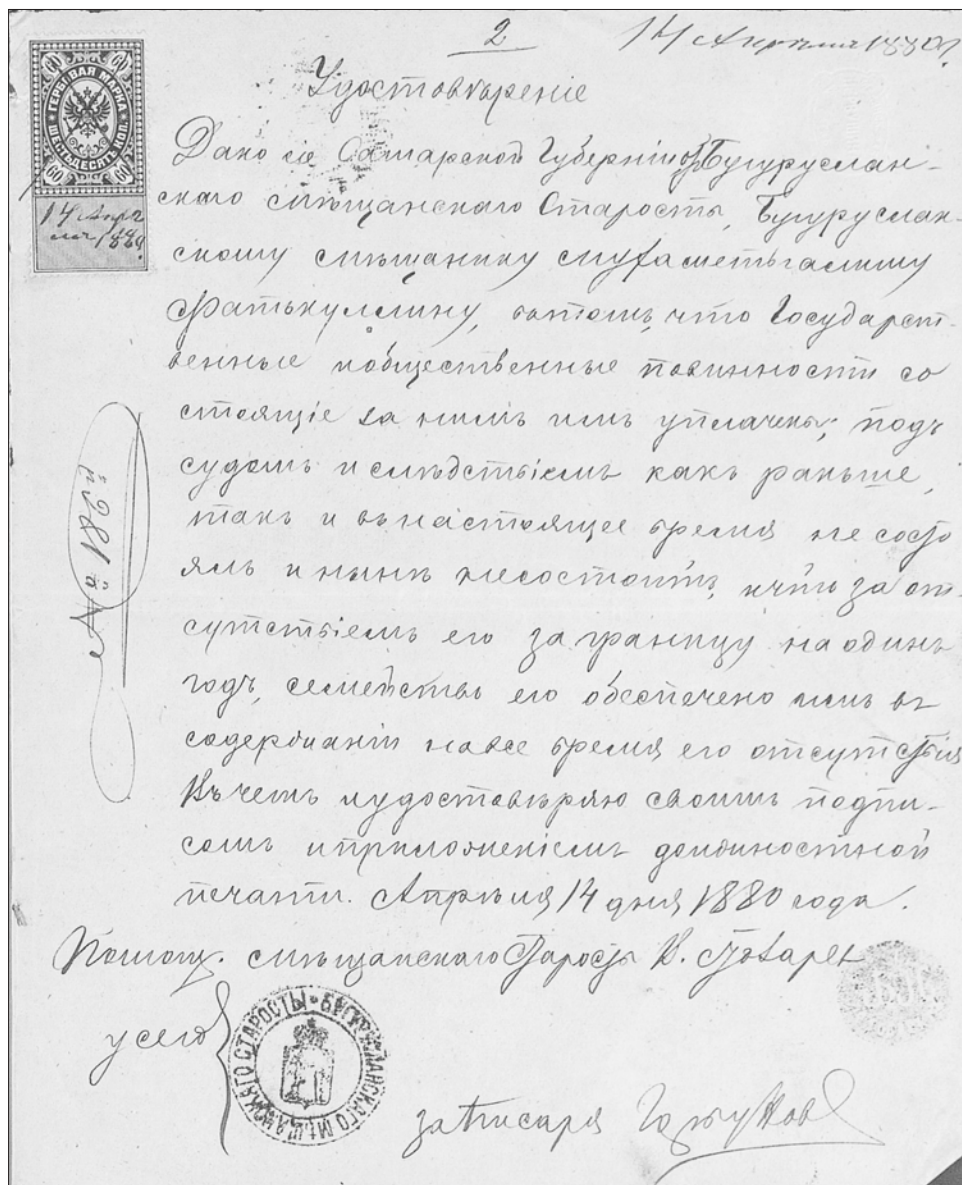 2
14 Апрѣля 1880 г.
ГЕРБОВАЯ МАРКА
ШЕСТЬДЕСЯТЪ КОП.
60 60
60 60
14 Апрѣ
ля 1880
Удостовѣреніе
Дано сіе Самарской Губерніи отъ Бугуруслан-
скаго мѣщанскаго Старосты, Бугуруслан-
скому мѣщанину Мухаметьгалиму
Фатькуллину, вътомъ, что Государст-
венные иобщественные повинности со
стоящіе за нимъ имъ уплачены; подъ
судомъ и слѣдствіемъ какъ раньше,
такъ и внастоящее время не состо
ялъ и нынѣ несостоитъ, ичто за от-
сутствіемъ его за границу на одинъ
годъ, семейство его обеспечено имъ въ
содержаніи навсе время его отсутствія
Въ чемъ иудостовѣряю своимъ подпи-
сомъ иприложеніемъ должностной
печати. Апрѣля 14 дня 1880 года.
Помощ. мѣщанскаго Старосты В.
у сего
БУГУРУСЛАНСКАГО МѢЩАНСКАГО СТАРОСТЫ
за Писаря
№ 281